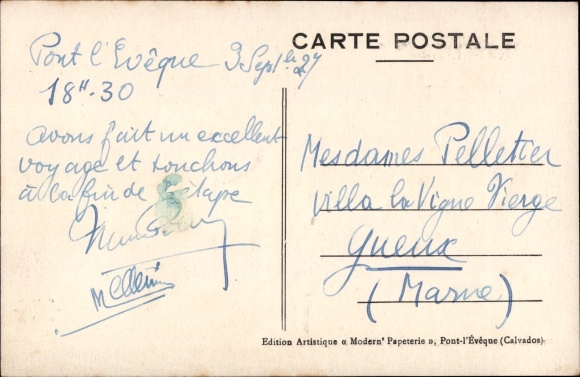 CARTE POSTALE
Pont l'Evêque 3 Septbre 27
18H.30
avons fait un excellent
voyage et touchons
à la fin de l'étape
Mesdames Pelletier
Villa la Vigne Vierge
Gueux
(Marne)
Edition Artistique « Modern' Papeterie », Pont-l'Évêque (Calvados)